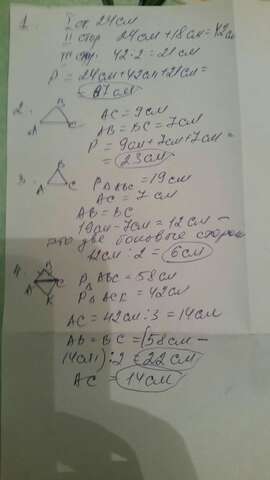 1. I ст 24см
II стор 24см+18см=42см
III стор 42:2=21см
P=24см+42см+21см=
=87см
2. B A C AC=9см
AB=BC=7см
P=9см+7см+7см=
=23см
3. B A C P△ABC=19см
AC=7см
AB=BC
19см-7см=12см-
это две боковые стороны
12см:2=6см
4. B A C K P△ABC=58см
P△ACK=42см
AC=42см:3=14см
AB=BC=(58см-
14см):2=22см
AC=14см